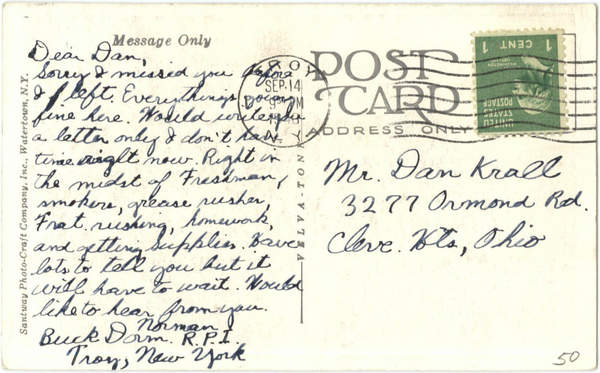 Message Only
Dear Dan,
Sorry I missed you before
I left. Everything's going
fine here. Would write you
a letter only I don't have
time right now. Right in
the midst of Freshman,
smokers, grease rusher,
Frat. rushing, homework,
and getting supplies. Have
lots to tell you but it
will have to wait. Would
like to hear from you.
Norman
Buck Dorm. R.P.I.
Troy, New York
Santway Photo-Craft Company, Inc., Watertown, N.Y.
VELVA-TONE
SEP 14
PM
N.Y.
POST
CARD
ADDRESS ONLY
1 CENT 1
UNITED STATES POSTAGE
Mr. Dan Krall
3277 Ormond Rd.
Cleve. Hts, Ohio
50